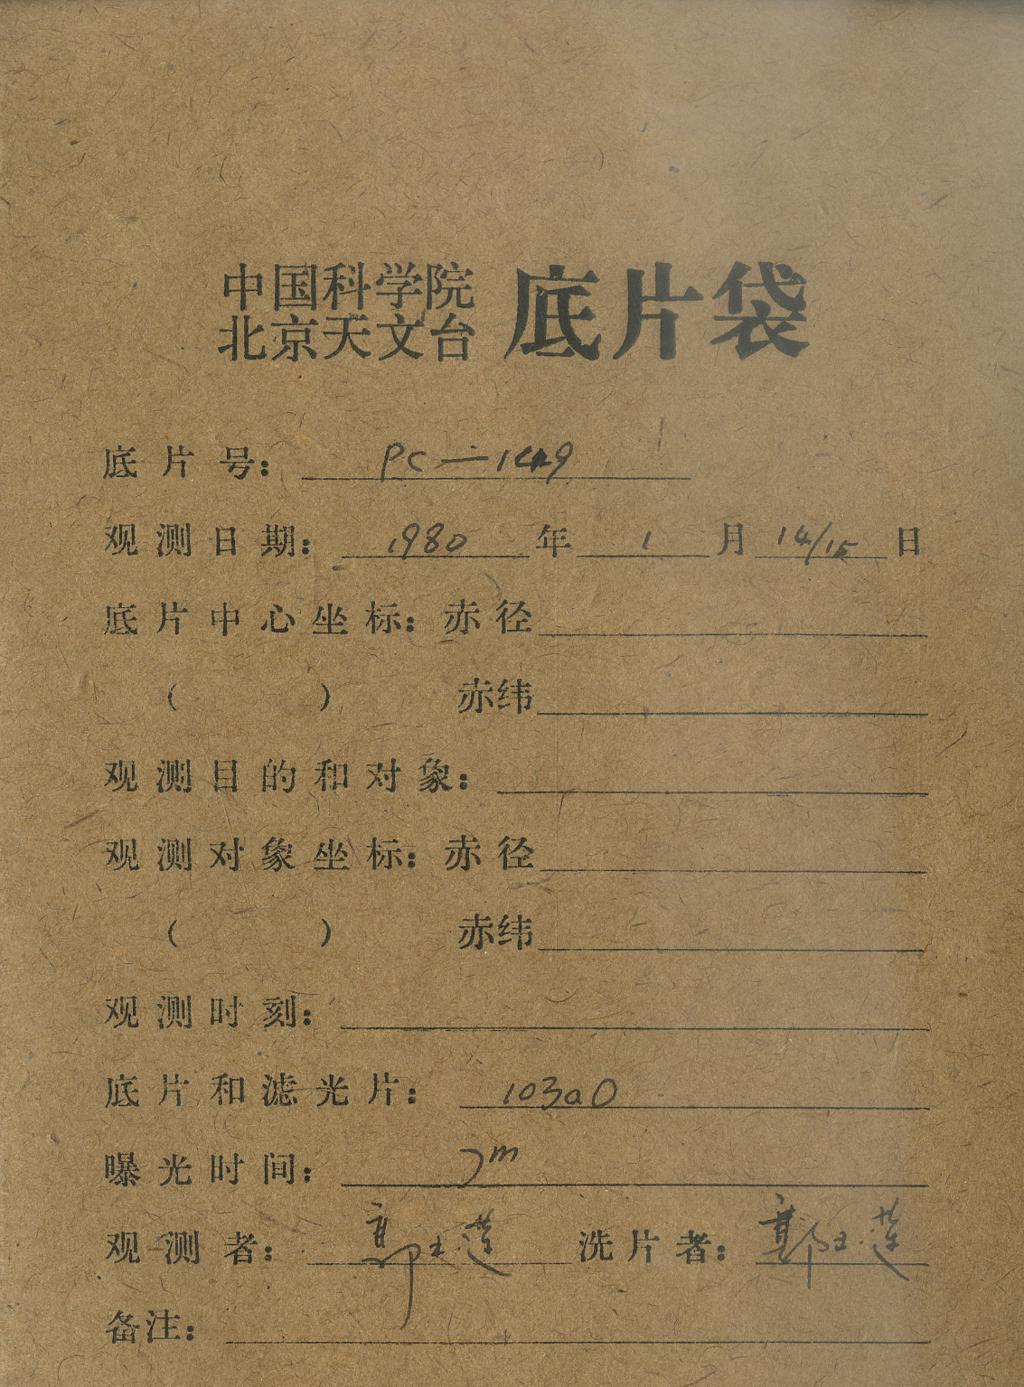 中国科学院
北京天文台 底片袋
底片号: PC—1449
观测日期: 1980 年 1 月 14/15 日
底片中心坐标: 赤径
( ) 赤纬
观测目的和对象:
观测对象坐标: 赤径
( ) 赤纬
观测时刻:
底片和滤光片: 103aO
曝光时间: 7m
观测者: 郭玉莲 洗片者: 郭玉莲
备注: